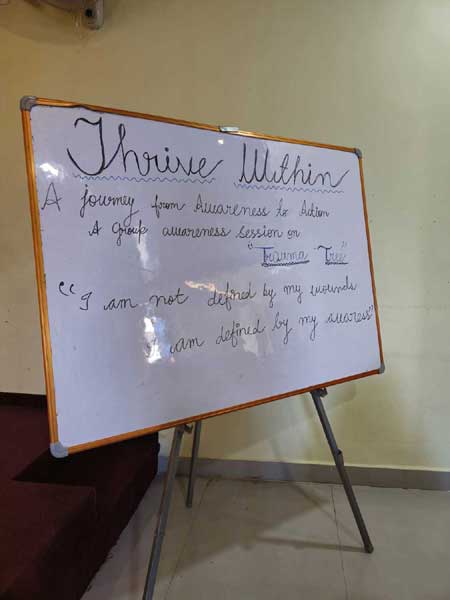 Thrive Within
A journey from Awareness to Action
A Group awareness session on
"Trauma Tree"
"I am not defined by my wounds
I am defined by my awaress"